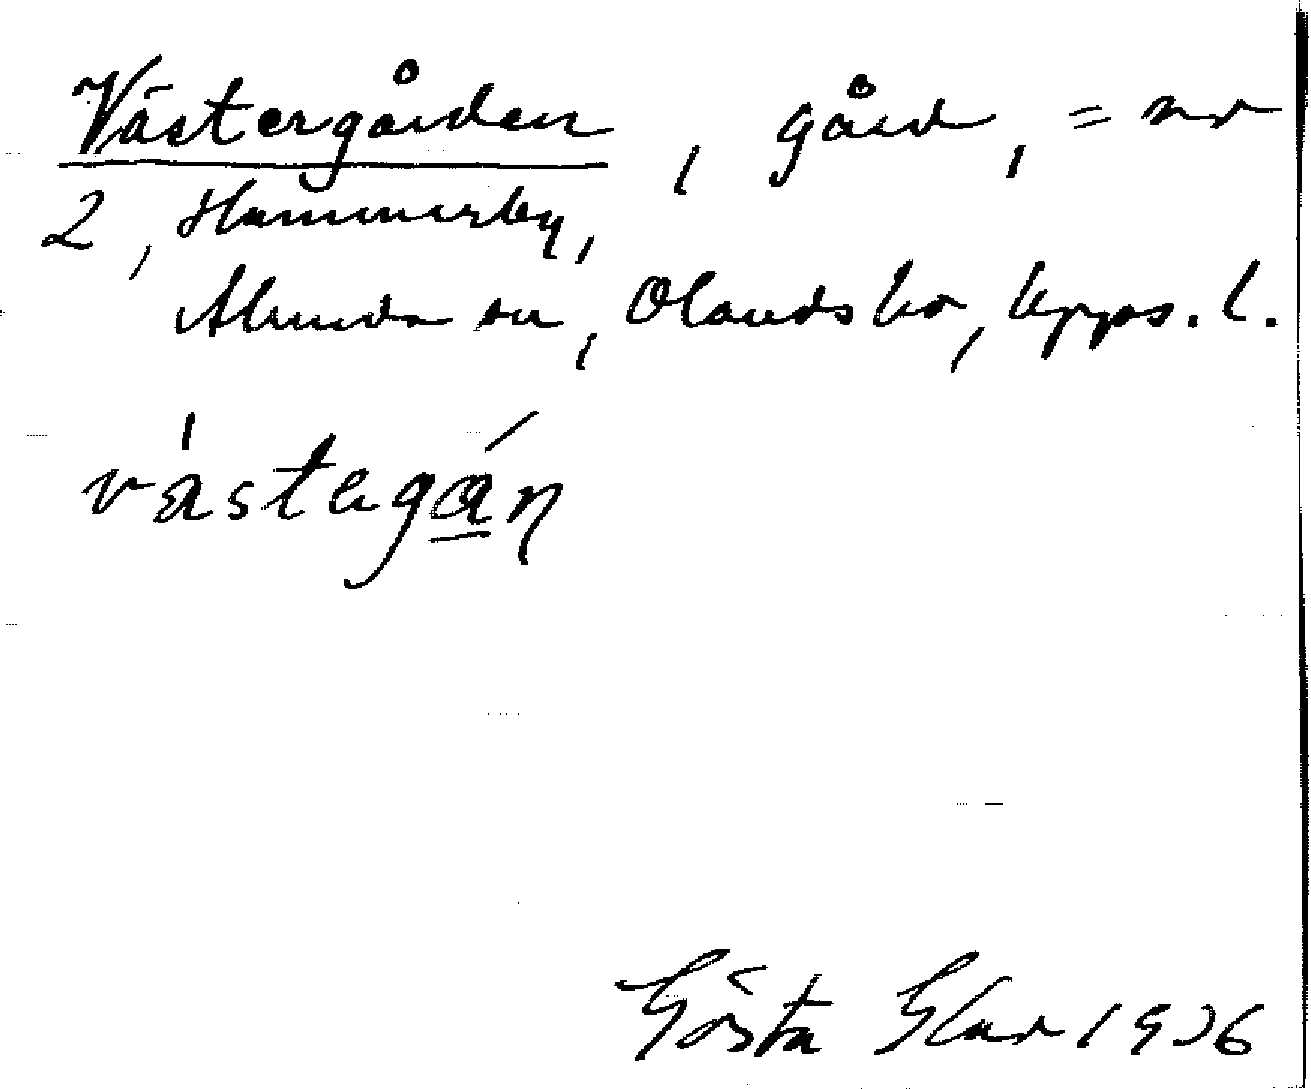 Västergården, gård, = nr
2, Hammarby,
Alunda sn, Olands hd, Upps. l.
västegán
Gösta